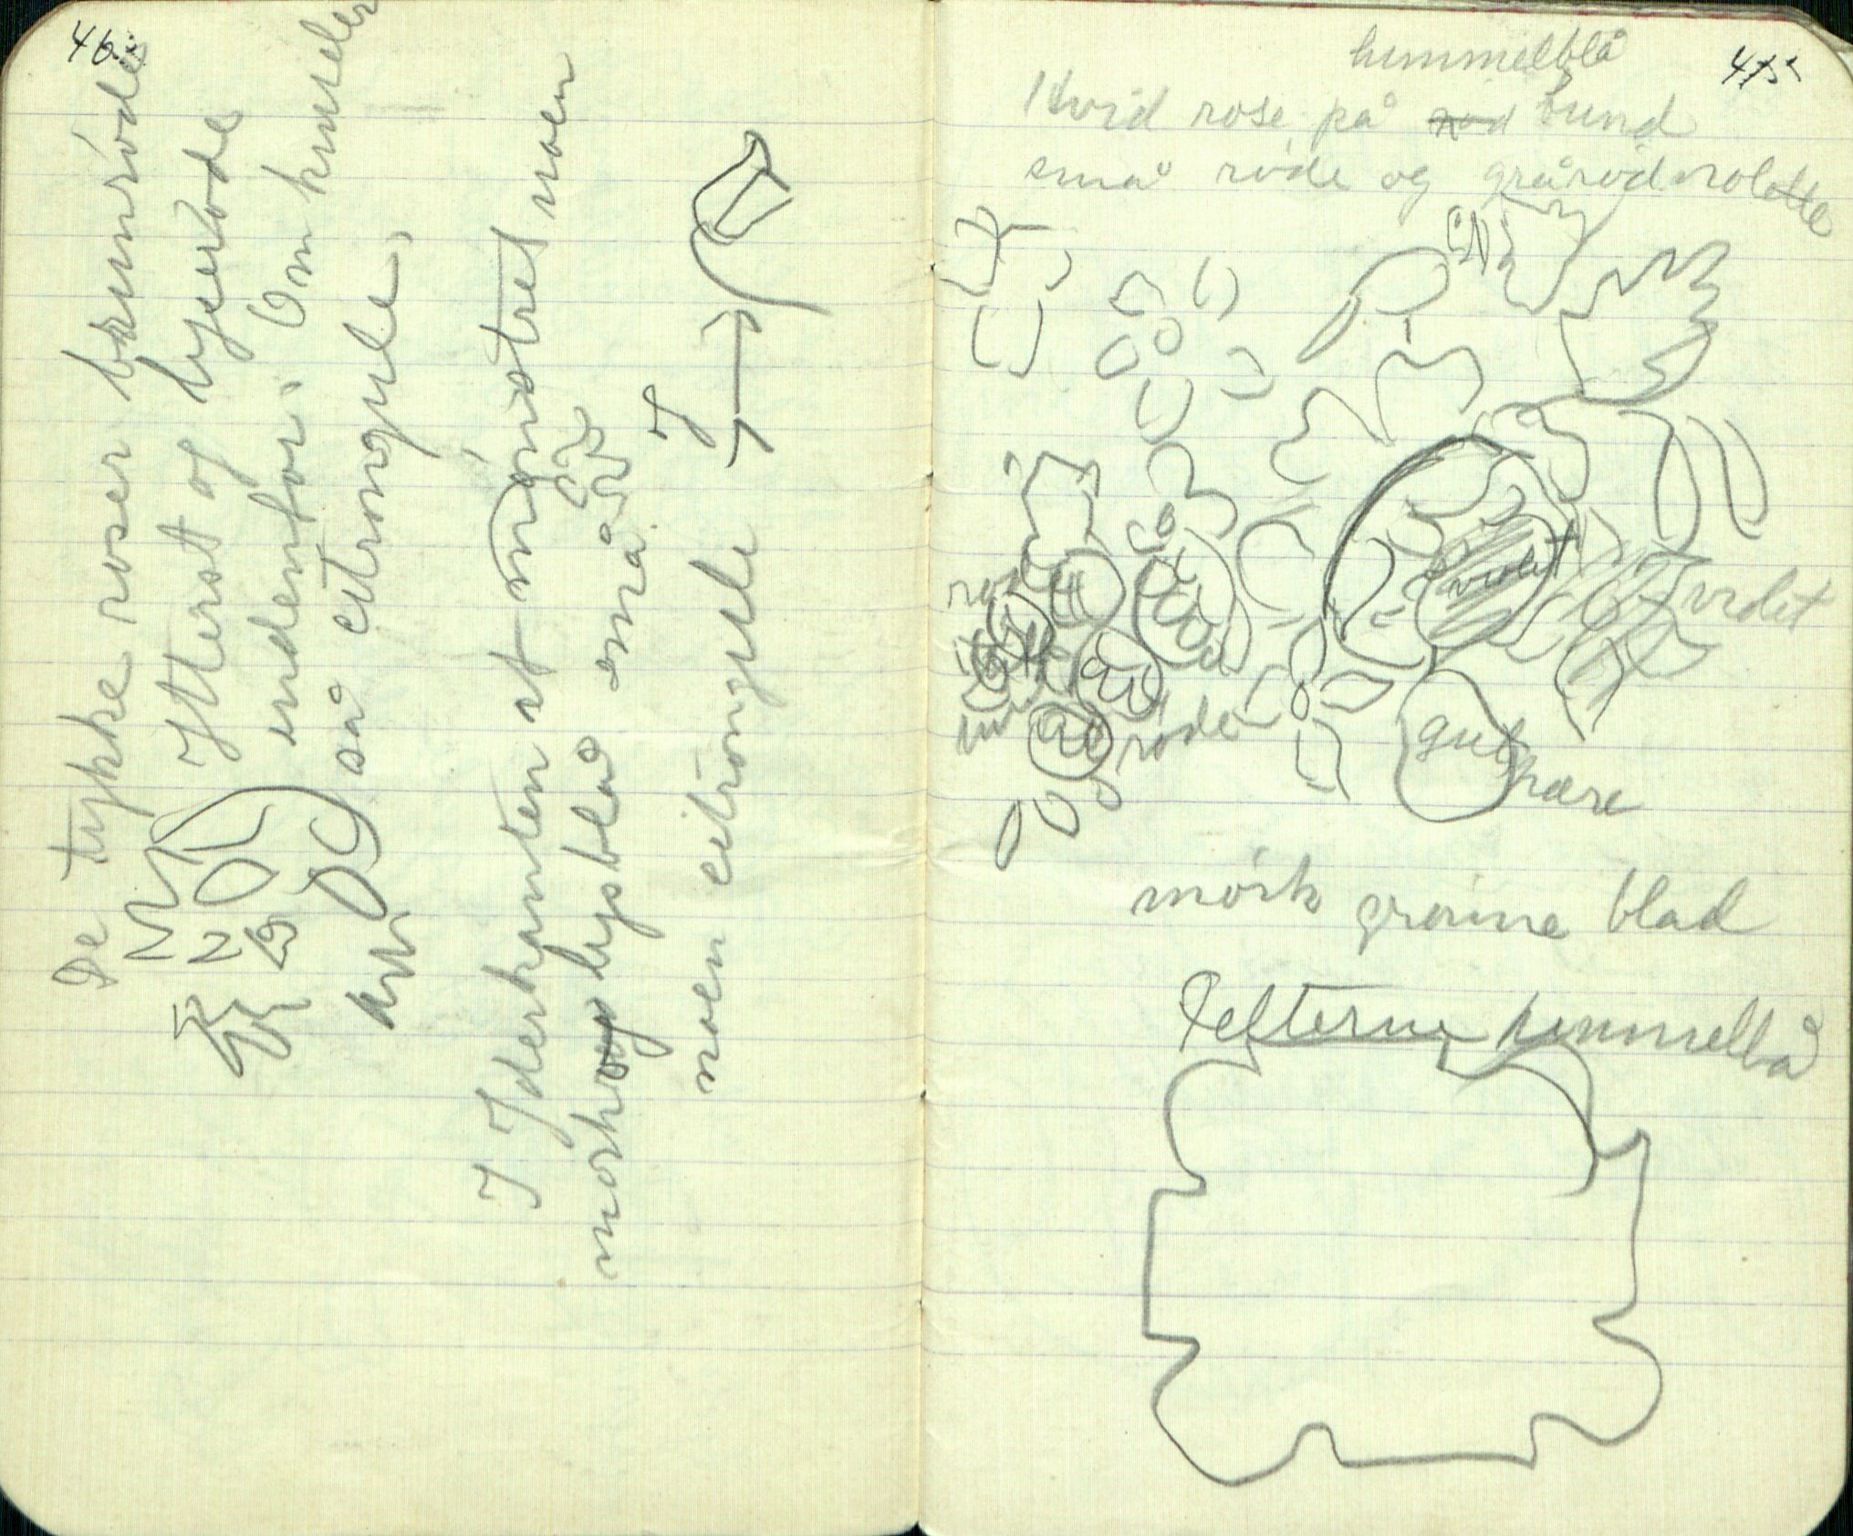 46.
De tykke roser brunrøde
Ytterst og lyserøde
indenfor. Om kruseler
så citrongule,
I Yderkanten et mønstret noen
mørk og lysblå små
og
noen citrongule
45.
himmelblå
Hvid rose på rød bund
små røde og grårød violette
violet
violet
røde
gul
pære
mørk grønne blad
Felterne himmelblå